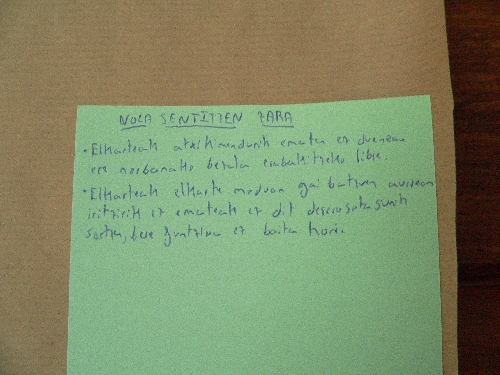 NOLA SENTITZEN ZARA
· Elkarteak atxikimendurik ematen ez duenean
ere norbanako bezala erabakitzeko libre.
· Elkarteak elkarte moduan gai batzuen aurrean
iritzirik ez emateak ez dit deserosotasunik
sortzen, bere funtzioa ez baita hori.